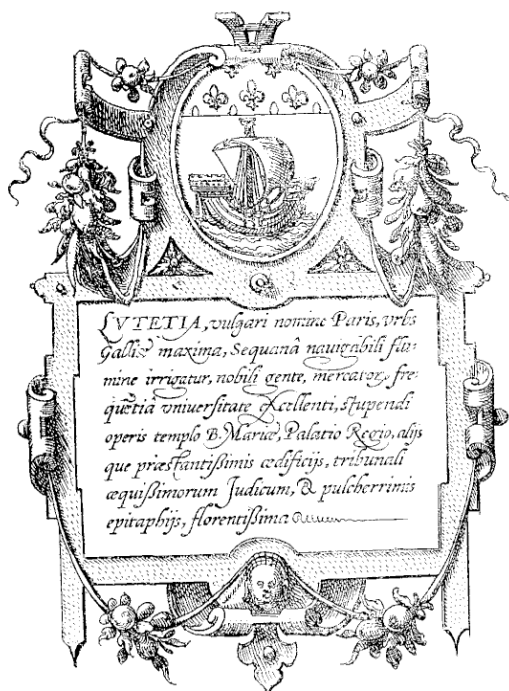 LVTETIA, vulgari nomine Paris, vrbs
Galliæ maxima, Sequanâ nauigabili flu-
mine irrigatur, nobili gente, mercatoꝝ fre-
quẽtia vniuersitate excellenti, stupendi
operis templo B. Mariæ, Palatio Regio, alijs
que præstantißimis ædificijs, tribunali
æquißimorum Judicum, & pulcherrimis
epitaphijs, florentißima